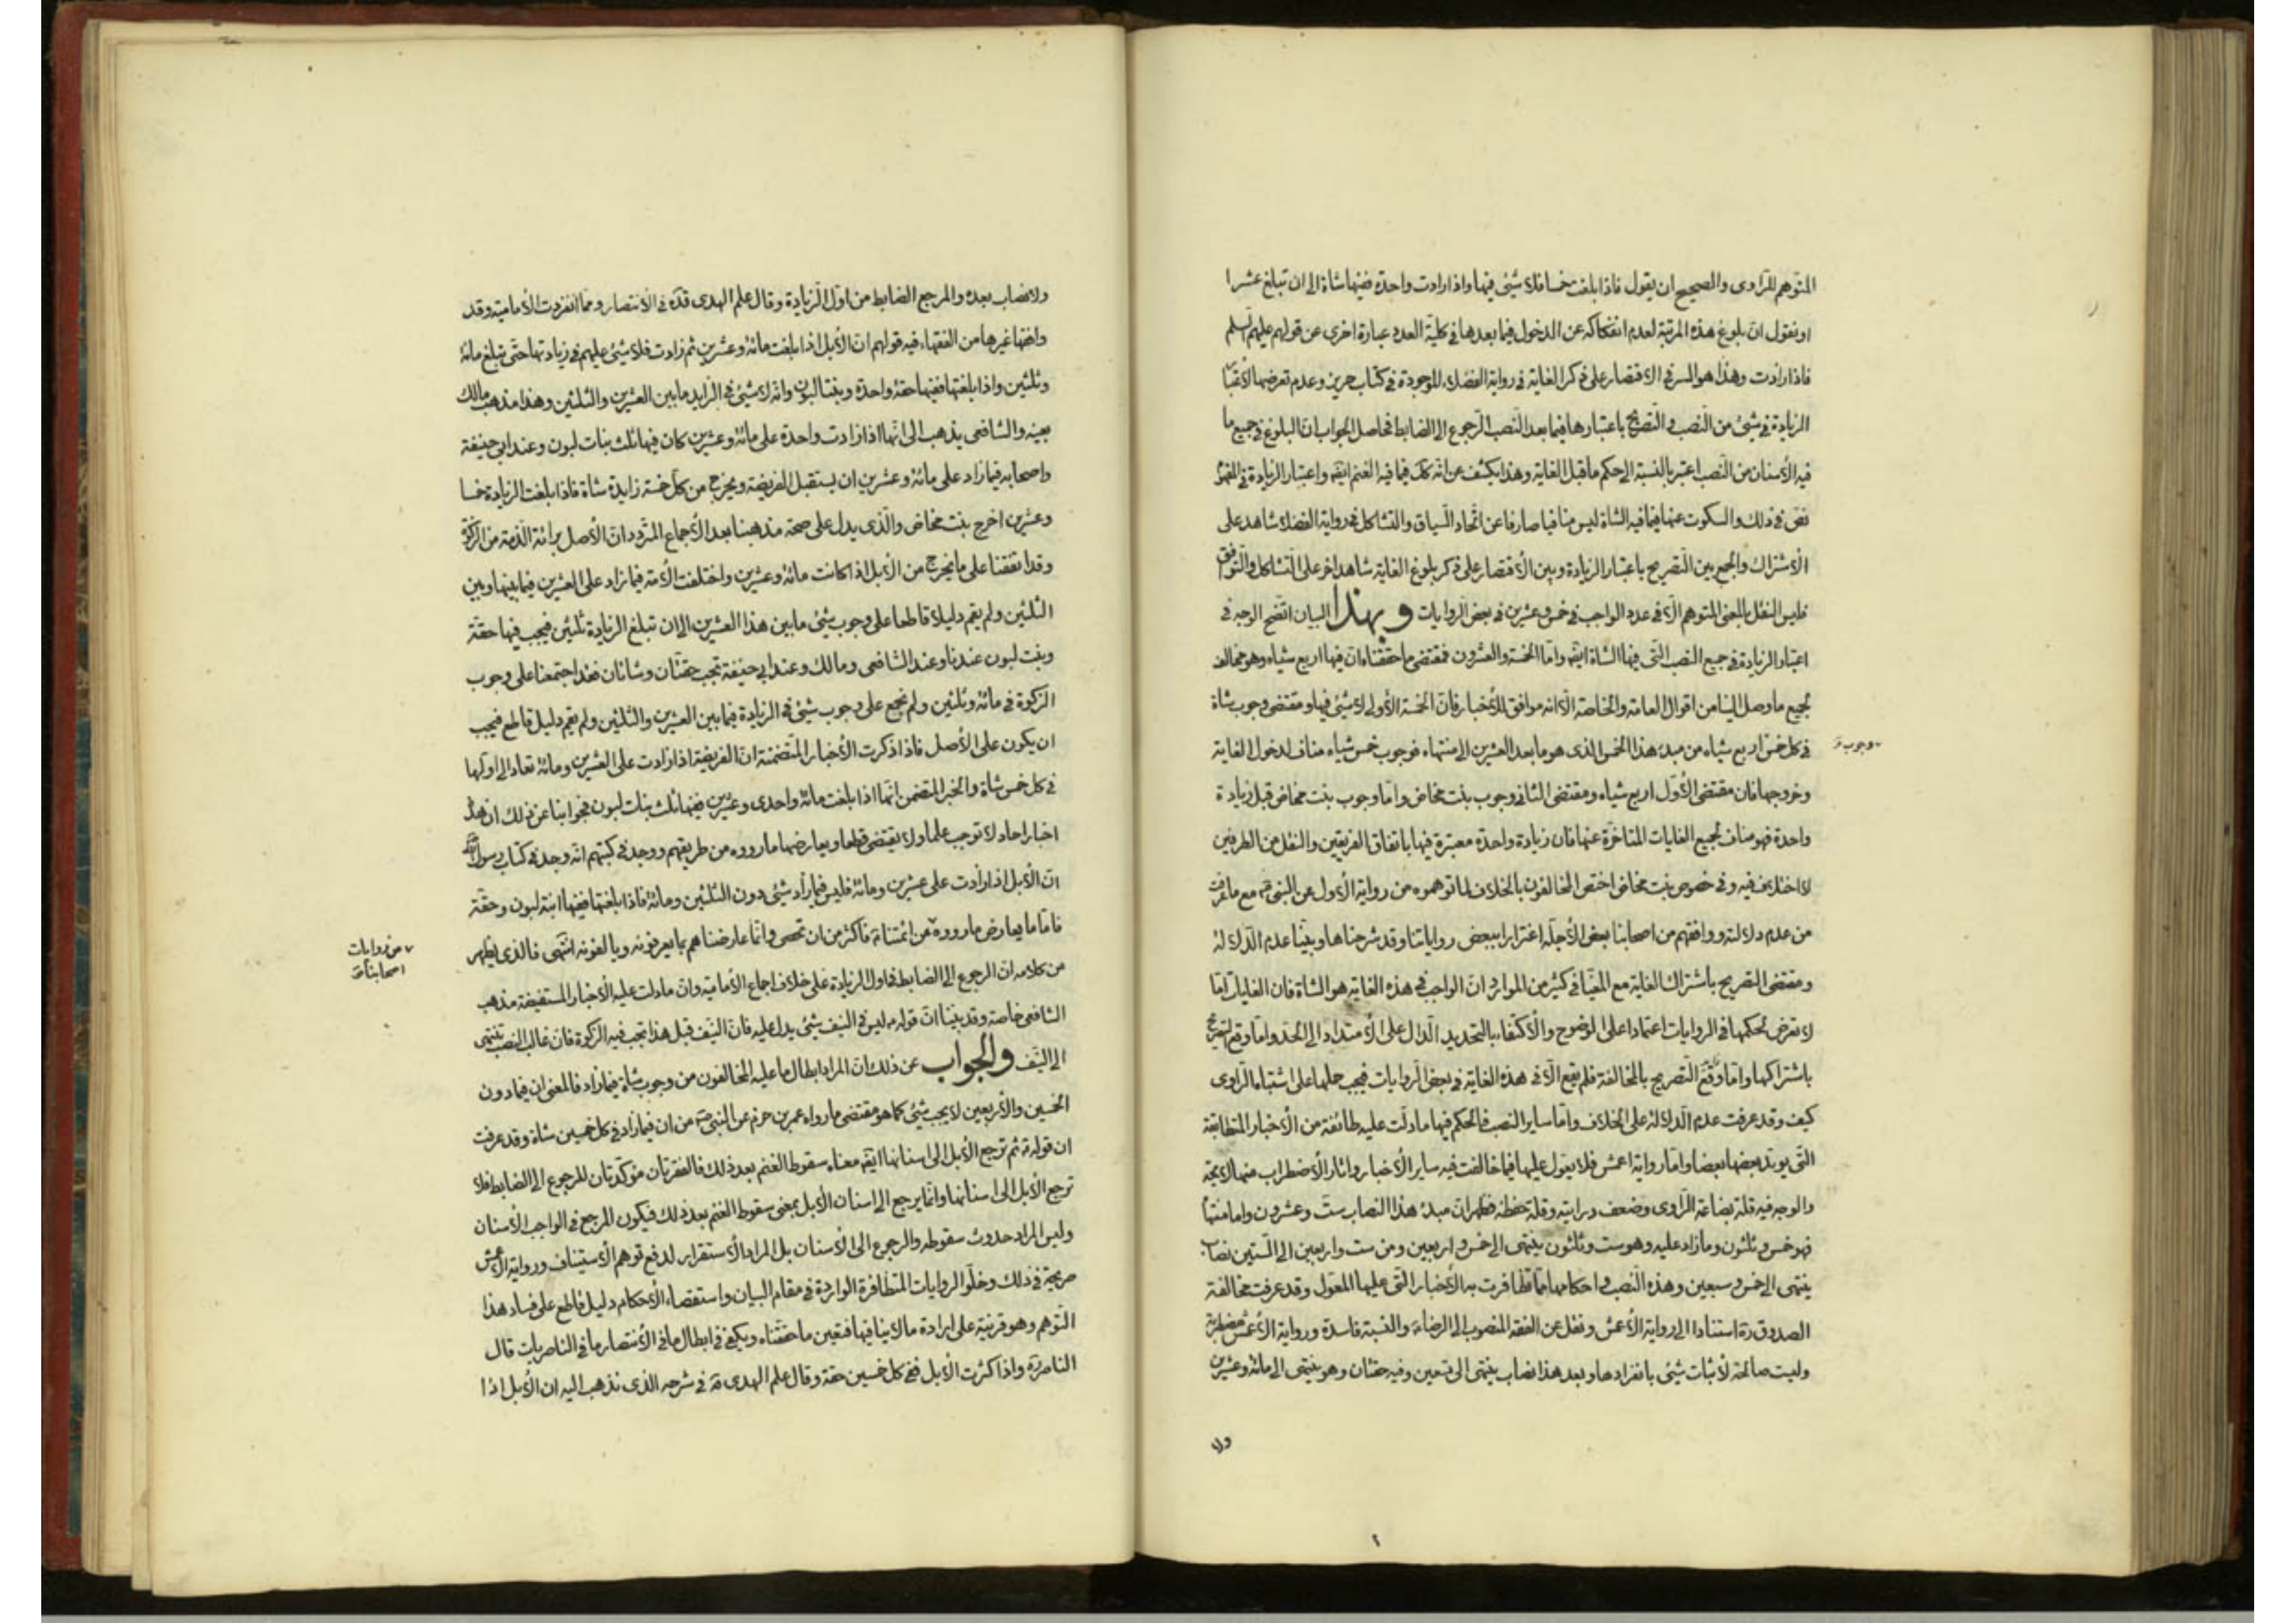 المتوهم للراوى والصحيح ان يقول فاذا بلغت خمسا فلا شيئ فيها واذا زادت واحدة ففيها شاة الى ان تبلغ عشرا
او نقول ان بلوغ هذه المرتبة لعدم انفكاكه عن الدخول فيما بعدها فى كلية العدد عبارة اخرى عن قولهم عليهم السلم
فاذا زادت وهذا هو السر فى الاقتصار على ذكر الغاية فى رواية الفضلاء الموجودة فى كتاب حريز وعدم تعرضها لاعتبار
الزيادة فى شيئ من النصب والتصريح باعتبارها فيما بعد النصب الرجوع الى الضابط فحاصل الجواب ان البلوغ فى جميع ما
فيه الأسنان من النصب اعتبر بالنسبة الى حكم ما قبل الغاية وهذا يكشف عن انه كك فيما فيه الغنم ايضا واعتبار الزيادة فى الفقه
نص فى ذلك والسكوت عنها فيما فيه الشاة ليس منافيا صارفا عن اتحاد السياق والتشاكل فى رواية الفضلا شاهد على
الاشتراك والجمع بين التصريح باعتبار الزيادة وبين الاقتصار على ذكر بلوغ الغاية شاهد اخر على التشاكل والتوافق
فليس النقل بالمعنى المتوهم الا فى عدد الواجب فى خمس وعشرين فى بعض الروايات وبهذا البيان اتضح الوجه فى
اعتبار الزيادة فى جميع النصب التى فيها الشاة ايضا واما الخمسة والعشرون فمقتضى ما حققناه ان فيها اربع شياه وهو مخالف
لجميع ما وصل الينا من اقوال العامة والخاصة الا انه موافق للأخبار فان الخمسة الأولى لا شيئ فيها ومقتضى وجوب شاة
فى كل خمس اربع شياه من مبدء هذا الخمس الذى هو ما بعد العشرين الى منتهاه فوجوب خمس شياه مناف لدخول الغاية
وجوب
وخروجها فان مقتضى الأول اربع شياه ومقتضى الثانى وجوب بنت مخاض واما وجوب بنت مخاض قبل زيادة
واحدة فهو مناف لجميع الغايات المتاخرة عنها فان زيادة واحدة معتبرة فيها باتفاق الفريقين والنقل من الطرفين
لا اختلاف فيه وفى خصوص بنت مخاض اختص المخالفون بالخلاف لما توهموه من رواية الأول عن النبى ص مع ما عرفت
من عدم دلالته ووافقهم من اصحابنا بعض الأجلة اغترارا ببعض رواياتنا وقد شرحناها وبينا عدم الدلالة
ومقتضى التصريح باشتراك الغاية مع المغيا فى كثير من الموارد ان الواجب فى هذه الغاية هو الشاة فان الغايات اما
لا تعرض لحكمها فى الروايات اعتمادا على الوضوح والاكتفاء بالتحديد الدال على الامتداد الى الحد واما وقع التصريح
باشتراكها واما وقع التصريح بالمخالفة فلم يقع الا فى هذه الغاية فى بعض الروايات فيجب حملها على اشتباه الراوى
كيف وقد عرفت عدم الدلالة على الخلاف واما ساير النصب فالحكم فيها ما دلت عليه طائفة من الأخبار المتطابقة
التى يؤيد بعضها بعضا واما رواية اعمش فلا يعول عليها فيما خالفت فيه ساير الأخبار واثار الأضطراب منها لايحة
والوجه فيه قلة بضاعة الراوى وضعف درايته وقلة حفظه فظهر ان مبدء هذا النصاب ست وعشرون واما منتهاه
فهو خمس وثلثون وما زاد عليه وهو ست وثلثون ينتهى الى خمس واربعين ومن ست واربعين الى الستين نصاب
ينتهى الى خمس وسبعين وهذه النصب واحكامها مما تظافرت به الأخبار التى عليها المعول وقد عرفت مخالفة
الصدوق ره استنادا الى رواية الأعمش ونقل عن الفقه المنصوب الى الرضا ع والنسبة فاسدة ورواية الأعمش مضطربة
وليست صالحة لأثبات شيئ بانفرادها وبعد هذا نصاب ينتهى الى تسعين وفيه حقتان وهو ينتهى الى مائة وعشرين
ولا
٢
ولا نصاب بعده والمرجع الضابط من اول الزيادة وقال علم الهدى قده فى الأنتصار ومما انفردت الأمامية وقد
وافقها غيرها من الفقهاء فيه قولهم ان الأبل اذا بلغت مائة وعشرين ثم زادت فلا شيئ عليهم فى زيادتها حتى تبلغ مائة
وثلثين واذا بلغتها ففيها حقة واحدة وبنتا لبون وانه لا شيئ فى الزايد ما بين العشرين والثلثين وهذا مذهب مالك
بعينه والشافعى يذهب الى انها اذا زادت واحدة على مائة وعشرين كان فيها ثلث بنات لبون وعند ابى حنيفة
واصحابه فيما زاد على مائة وعشرين ان يستقبل الفريضة ويخرج من كل خمسة زايدة شاة فاذا بلغت الزيادة خمسا
وعشرين اخرج بنت مخاض والذى يدل على صحة مذهبنا بعد الأجماع المتردد ان الأصل برائة الذمة من الزكوة
وقد اتفقنا على ما يخرج من الأبل اذا كانت مائة وعشرين واختلفت الأمة فيما زاد على العشرين فيما بينها وبين
الثلثين ولم يقم دليلا قاطعا على وجوب شيئ ما بين هذا العشرين الى ان تبلغ الزيادة ثلثين فيجب فيها حقة
وبنت لبون عندنا وعند الشافعى ومالك وعند ابى حنيفة تجب حقتان وشاتان فقد اجتمعنا على وجوب
الزكوة فى مائة وثلثين ولم نجمع على وجوب شيئ فى الزيادة فيما بين العشرين والثلثين ولم يقم دليل قاطع فيجب
ان يكون على الأصل فاذا ذكرت الأخبار المتضمنة ان الفريضة اذا زادت على العشرين ومائة تعاد الى اولها
فى كل خمس شاة والخبر المتضمن انها اذا بلغت مائة واحدى وعشرين ففيها ثلث بنات لبون فجوابنا عن ذلك ان هذه
اخبار احاد لا توجب علما ولا يقتضى قطعا ويعارضها ما رووه من طريقهم ووجد فى كتبهم انه وجد فى كتاب رسول الله
ان الأبل اذا زادت على عشرين ومائة فليس فيما زاد شيئ دون الثلثين ومائة فاذا بلغتها ففيها ابنة لبون وحقة
فاما ما يعارض ما رووه من ائمتنا ع فاكثر من ان تحصى وانما عارضناهم بما يعرفونه ويالفونه انتهى فالذى يظهر
من روايات
اصحابنا
من كلامه ان الرجوع الى الضابط فى اول الزيادة على خلاف اجماع الأمامية وان ما دلت عليه الأخبار المستفيضة مذهب
الشافعى خاصة وقد بينا ان قوله ع ليس فى النيف شيئ يدل عليه فان النيف قبل هذا تجب فيه الزكوة فان غالب النصب تنتهى
الى النيف والجواب عن ذلك ان المراد ابطال ما عليه المخالفون من وجوب شاة فيما زاد فالمعنى ان فيما دون
الخمسين والأربعين لا يجب شيئ كما هو مقتضى ما رواه عمر بن حزم عن النبى ص من ان فيما زاد فى كل خمسين شاة وقد عرفت
ان قوله ع ثم ترجع الأبل الى اسنانها ايضا معناه سقوط الغنم بعد ذلك فالفقرتان مؤكدتان للرجوع الى الضابط فلا
ترجع الأبل الى اسنانها وانما يرجع الى اسنان الأبل بمعنى سقوط الغنم بعد ذلك فيكون المرجع فى الواجب الأسنان
وليس المراد حدوث سقوطه والرجوع الى الأسنان بل المراد الأستقرار لدفع توهم الأستيناف ورواية الأعمش
صريحة فى ذلك وخلو الروايات المتظافرة الواردة فى مقام البيان واستقصاء الأحكام دليل قاطع على فساد هذا
التوهم وهو قرينة على ارادة ما لا ينافيها فتعين ما حققناه ويكفى فى ابطال ما فى الأنتصار ما فى الناصريات قال
الناصر ره واذا كثرت الأبل ففى كل خمسين حقة وقال علم الهدى قه فى شرحه الذى نذهب اليه ان الأبل اذا